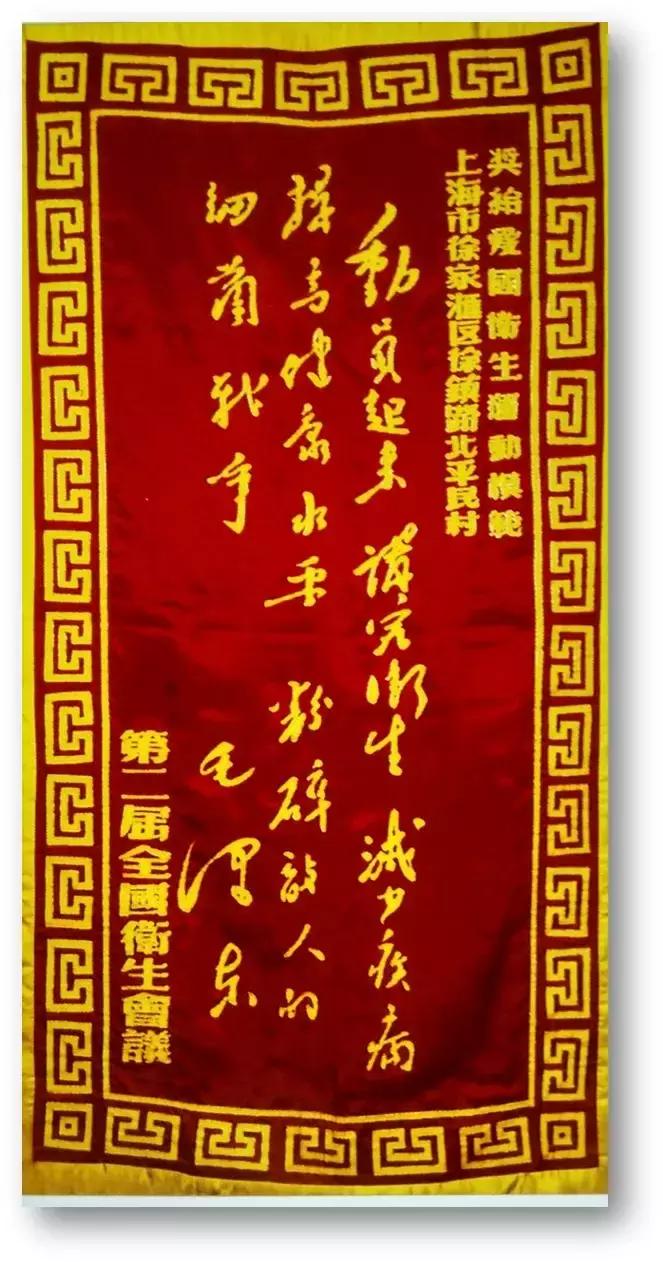 奖給愛國衞生運動模範
上海市徐家滙区徐鎮路北平民村
動員起来 講究衛生 減少疾病
提高健康水平 粉碎敌人的
细菌战争
毛澤东
第二届全國衞生會議